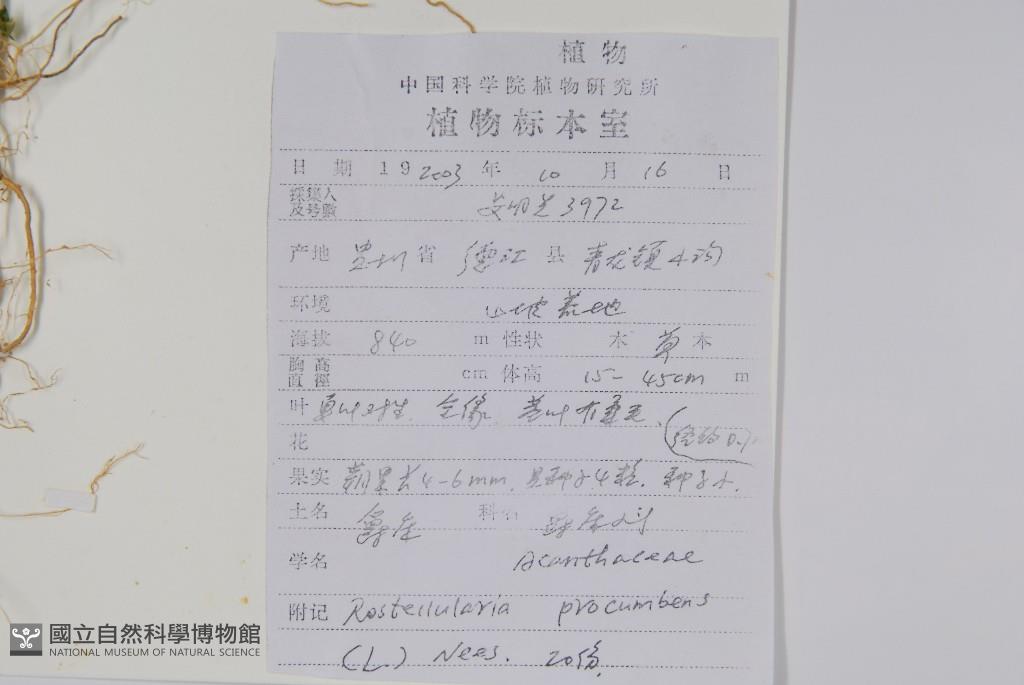 植物
中国科学院植物研究所
植物标本室
日期 19 2003 年 10 月 16 日
採集人及号数 3972
产地 贵州 省 德江 县 青龙镇
环境 山坡草地
海拔 840 m 性状 木 草 本
胸高直徑 cm 体高 15-45cm m
叶 单叶对生. 全缘.
花
果实 蒴果长4-6mm. 具种子4粒. 种子小.
土名 爵床 科名 爵床科
学名 Acanthaceae
附记 Rostellularia procumbens
(L.) Nees. 20份.
國立自然科學博物館
NATIONAL MUSEUM OF NATURAL SCIENCE